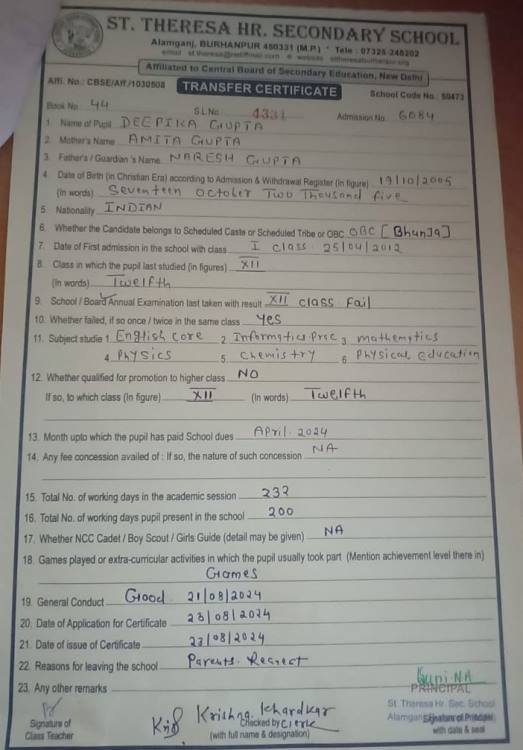 ST. THERESA HR. SECONDARY SCHOOL
Alamganj, BURHANPUR 450331 (M.P.) * Tele : 07325-245202
Affiliated to Central Board of Secondary Education, New Delhi
Affi. No.: CBSE/Aff./1030508 TRANSFER CERTIFICATE School Code No.: 50473
Book No. 44 S.L.No. 4331 Admission No. 6084
1. Name of Pupil DEEPIKA GUPTA
2. Mother's Name AMITA GUPTA
3. Father's / Guardian 's Name NARESH GUPTA
4. Date of Birth (in Christian Era) according to Admission & Withdrawal Register (in figure) 19/10/2005
(In words) Seventeen October Two Thousand five
5. Nationality INDIAN
6. Whether the Candidate belongs to Scheduled Caste or Scheduled Tribe or OBC OBC [Bhunja]
7. Date of First admission in the school with class I class. 25/04/2012
8. Class in which the pupil last studied (in figures) XII
(In words) Twelfth
9. School / Board Annual Examination last taken with result XII class Fail
10. Whether failed, if so once / twice in the same class yes
11. Subject studie 1. English Core 2. Informatics Prac 3. mathematics
4. Physics 5. Chemistry 6. Physical Education
12. Whether qualified for promotion to higher class NO
If so, to which class (In figure) XII (In words) Twelfth
13. Month upto which the pupil has paid School dues April. 2024
14. Any fee concession availed of : If so, the nature of such concession NA
15. Total No. of working days in the academic session 232
16. Total No. of working days pupil present in the school 200
17. Whether NCC Cadet / Boy Scout / Girls Guide (detail may be given) NA
18. Games played or extra-curricular activities in which the pupil usually took part (Mention achievement level there in)
Games
19. General Conduct Good 21/08/2024
20. Date of Application for Certificate 23/08/2024
21. Date of issue of Certificate 23/08/2024
22. Reasons for leaving the school Parents. Recrect
23. Any other remarks
PRINCIPAL
St. Theresa Hr. Sec. School
Krishna Khardkar
Signature of Checked by Clerk Signature of Principal
Class Teacher (with full name & designation) with date & seal